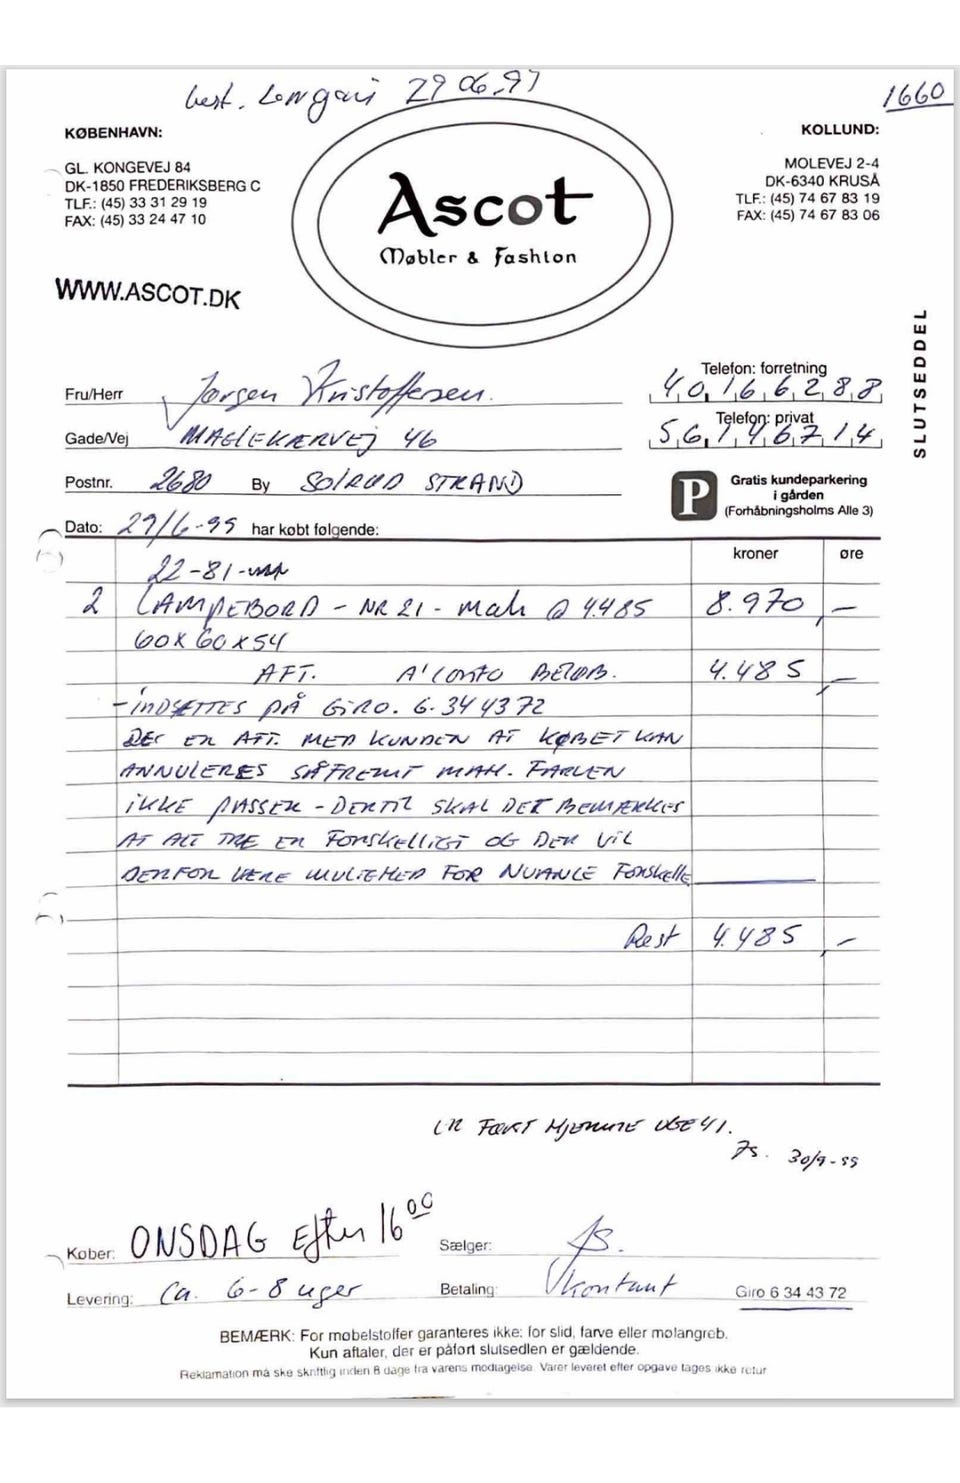 best. 29 06.99
1660
KØBENHAVN:
GL. KONGEVEJ 84
DK-1850 FREDERIKSBERG C
TLF.: (45) 33 31 29 19
FAX: (45) 33 24 47 10
WWW.ASCOT.DK
Ascot
Møbler & Fashion
KOLLUND:
MOLEVEJ 2-4
DK-6340 KRUSÅ
TLF.: (45) 74 67 83 19
FAX: (45) 74 67 83 06
SLUTSEDDEL
Fru/Herr Jørgen Kristoffersen.
Telefon: forretning
40166288
Gade/Vej MAGLEKÆRVEJ 46
Telefon: privat
56146714
Postnr. 2680 By SOLRØD STRAND
P Gratis kundeparkering
i gården
(Forhåbningsholms Alle 3)
Dato: 29/6-99 har købt følgende:
kroner øre
22-81-
2 LAMPEBORD - NR 21 - MAH @ 4.485 8.970,-
60 X 60 X 54
AFT. A'CONTO BELØB. 4.485,-
- INDSETTES PÅ GIRO. 6.344372
DET ER AFT. MED KUNDEN AT KØBET KAN
ANNULERES SÅFREMT MAH. FARVEN
IKKE PASSER - DERTIL SKAL DET BEMÆRKES
AT ALT TRE ER FORSKELLIGT OG DER VIL
DERFOR VERE MULIGHED FOR NUANCE FORSKELLE
Rest 4.485,-
FØRST HJEMME UGE 41.
JS. 30/9-99
Køber: ONSDAG Efter 16 00
Sælger: JS.
Levering: Ca. 6-8 uger
Betaling: Kontant
Giro 6 34 43 72
BEMÆRK: For møbelstoffer garanteres ikke: for slid, farve eller mølangreb.
Kun aftaler, der er påført slutsedlen er gældende.
Reklamation må ske skriftlig inden 8 dage fra varens modtagelse. Varer leveret efter opgave tages ikke retur